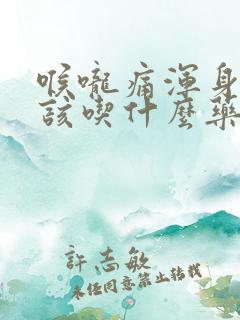 喉嚨痛渾身
該喫什麼藥
許志敏
未经同意禁止转载